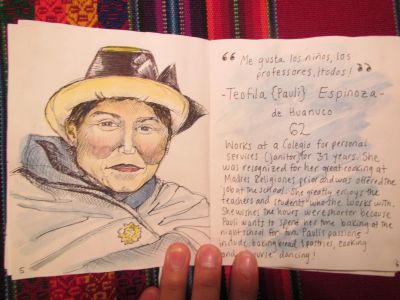 “ Me gusta los niños, los
professores, ¡todos! ”
-Teofila {Pauli} Espinoza-
de Huanuco
62
Works at a Colegio for personal
services (janitor) for 31 years. She
was recognized for her great cooking at
Madres Religiones, prior and was offered the
job at the school. She greatly enjoys the
teachers and student who she works with.
She wishes the hours were shorter because
Pauli wants to spend her time baking at the
night school for fun. Pauli's passions
include baking bread & pastries, cooking
and course dancing!
5
6